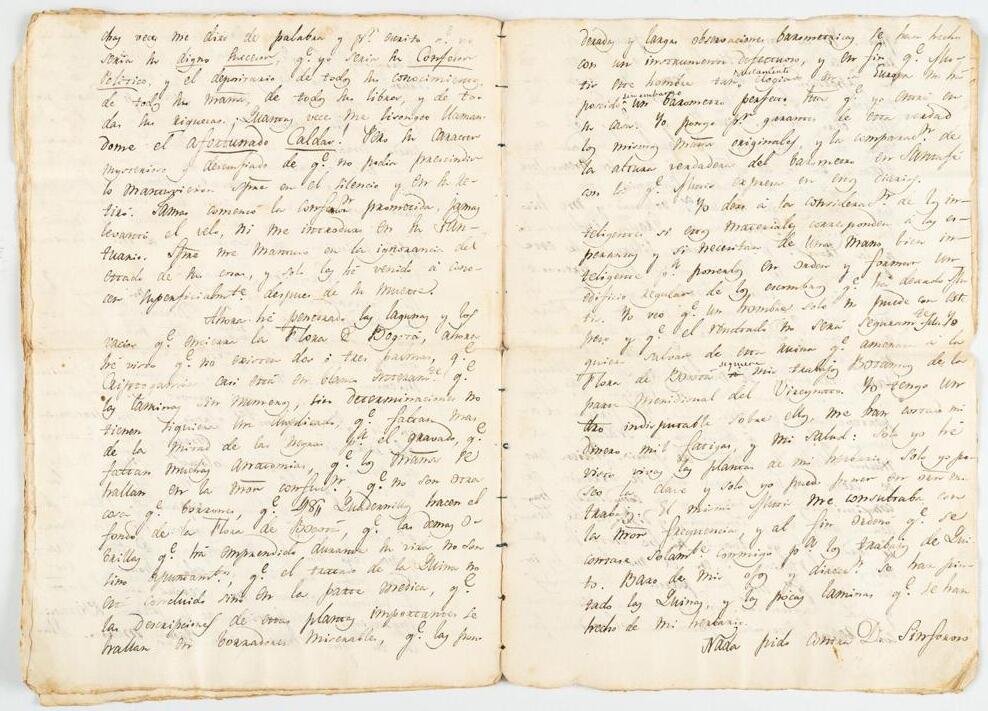 chas veces me dixo de palabra y pr. escrito q.e yo
seria su digno sucesor, q.e yo seria su Confesor
Politico, y el depositario de todos sus conocimientos,
de todos sus manus, de todos sus libros, y de to-
das sus riquezas. ¡Quantas veces me lisongeó llaman-
dome el afortunado Caldas! Pero su caracter
mysterioso y desconfiado de q.e no podia prescindir
lo mantuvieron spre en el silencio y en su re-
tiro. Jamas comenzó la confianza prometida, jamas
levantó el velo, ni me introduxo en su San-
tuario. Spre me mantuvo en la ignorancia del
estado de sus cosas, y solo las hé venido á cono-
cer superficialmte despues de su muerte.
Ahora hé penetrado las lagunas y los
vacios q.e encierra la Flora de Bogotá, ahora
hé visto q.e no existen dos ó tres palmas, q.e
Criptogamia casi está en blanco q.e
las laminas sin numeros, sin determinaciones no
tienen siquiera un duplicado, q.e faltan mas
de la mitad de las negras pa. el gravado, q.e
faltan muchas anatomias, q.e los manus se
hallan en la mor confusn. q.e no son otra
cosa q.e borrones, q.e 48 Quadernillos hacen el
fondo de la Flora de Bogotá, q.e las demas o-
brillas q.e há emprendido durante su vida no son
sino apuntamts, q.e el tratado de la Quina no
está concluido sino en la parte medica, q.e
las Descripciones de otras plantas importantes se
hallan en borradores miserables, q.e las pon-
deradas y largas observaciones barometricas se han hecho
con un instrumento defectuoso, y en fin q.e Mu-
tis este hombre tan justamente elogiado en la Europa no há
poseido sin embargo un barometro perfecto hasta q.e yo entré en
su casa. Yo pongo pr. garantes de esta verdad
los mismos manus originales, y la comparacn. de
la altura verdadera del barometro en Santafé
con la q.e Mutis expresa en esos diarios.
Yo dexo á la consideracn. de los in-
teligentes si estos materiales corresponden á las es-
peranzas y si necesitan de una mano bien in-
teligente pa. ponerlos en orden y formar un
edificio regular de los escombros q.e há dexado Mu-
tis. Yo veo q.e un hombre solo no puede con este
peso y q.e el resultado no será seguramte. Yo
quiero salvar de esta ruina q.e amenaza á la
Flora de Bogotá siquiera mis trabajos Botanicos de la
parte Meridional del Vireynato. Yo tengo un
dro indisputable sobre ellos, me han costado mi
dinero, mil fatigas, y mi salud: solo yo hé
visto vivas las plantas de mi herbario, solo yo po-
seo la clave y solo yo puedo poner en orden mis
trabajos. El mismo Mutis me consultaba con
la mor frequencia, y al fin ordenó q.e se
contase solamte conmigo pa. los trabajos de Qui-
to. Baxo de mis ojos y direccn. se han pin-
tado las Quinas, y las pocas laminas q.e se han
hecho de mi herbario.
Nada pido contra Dn Sinforoso